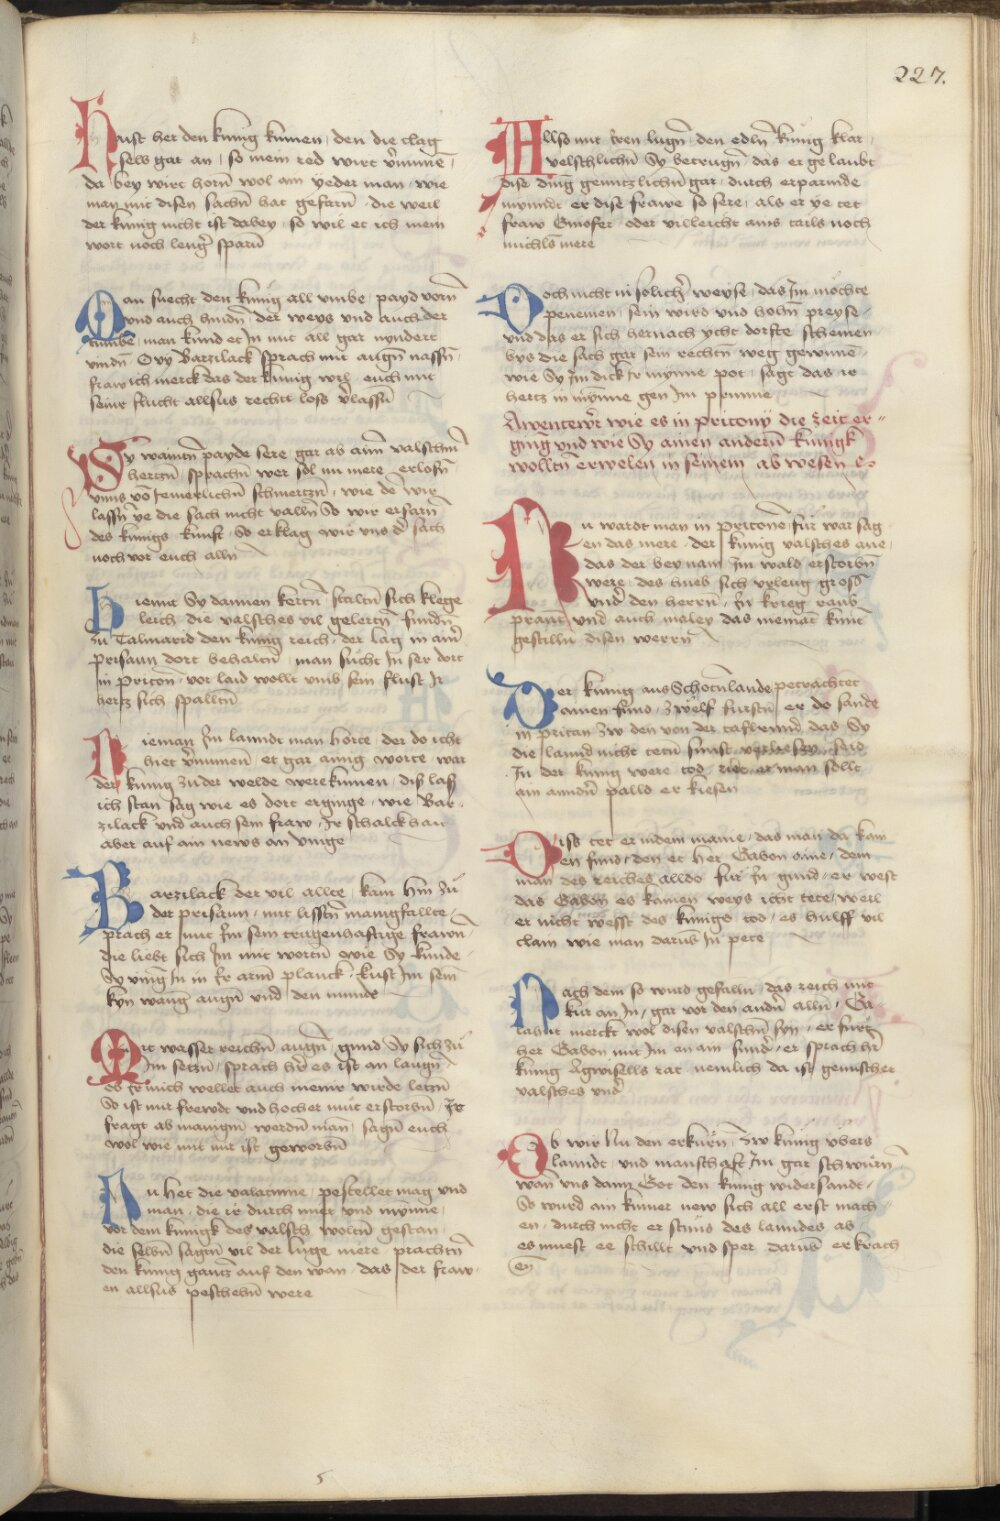 227.
Haist her den kunig kumen / den die clag
selbs gat an / so mein red wirt v̾nūmē /
da bey wirt horn̄ wol ain yeder man / wie
man mit disen sachn̄ hat gefarn̄ / die weil
der kunig nicht ist dabey / so wil er ich mein
wort noch lengʼ sparn̄
Man suecht den kunig all vmbe / payd vorn̄
vnd auch hindn̄ / der weys vnd auch der
tumbe / man kund er In mit all gar nyndert
vindn̄ Owy Barzilack sprach mit augn̄ nassn̄ /
fraw ich merck das der kunig wil / euch mit
seiner flucht allsus rechte loss v̾lassn̄
Sy waintn̄ payde sere gar ab aim valschm̄
hertzn̄ / sprachn̄ wer sol nu mere / erlosn̄
vnns vō Iemerlichn̄ schmertzn̄ / wie de wir
lassn̄ ye die sach nicht valln̄ So wir erfarn̄
des kunigs kunft / So erklag wir vns d̾ sach
noch vor euch alln̄
Hiemit Sy dannen kertn̄ stalltn̄ sich klege
leich / die valsches vil gelertn̄ / fundn̄
zu Talimarid den kunig reich / der lag in aim̄
prisaun dort behaltn̄ / man sucht In ser dort
in priton̄ / vor laid wollt vmb sein flust Ir
hertz sich spalltn̄
Nieman Im lanndt man horte / der do icht
hiet v̾nūmen / er gar ainig worte war
der kunig zu der welde were kumen / dis lass
ich stan sag wie es dort erginge / wie Bar-
zilack vnd auch sein fraw / Ir schalckhait
aber auf ain news an vinge
Barzilack der vil allte / kam hin zu
der prisaun / mit listn̄ manigfallte /
sprach er mit Im sein trugenhaftige frawn̄ /
die liebt sich Im mit wortn̄ wie Sy kunde /
Sy vm̄g In in Ir arm̄ planck / kust Im sein
kyn wang augn̄ vnd den munde
Mit wasser reichn̄ augn̄ / gund Sy sich zu
Im setzn̄ / sprach hr̄ es ist an laugn̄ /
es Ir mich wellet auch meinr wirde letzn̄
So ist mir frewdt vnd hocher mut erstorbn̄ / Ir
fragt ab manigm̄ werdn̄ man / sagn̄ euch
wol wie mit mir ist geworbn̄
Nu het die valantinne / pestellet mag vnd
man / die ir durch miet vnd mynne /
vor dem kunigk des valsch woltn̄ gestan /
die selbn̄ sagtn̄ vil der luge mere / prachtn̄
den kunig gantz auf den wan / das der fraw-
en allsus peschehn̄ were
Allso mit Iren lugn̄ / den edln̄ kunig klar /
velschlichn̄ Sy betrugn̄ / das er gelaubt
dise ding genntzlichn̄ gar / durch erparmde
mynndt er dise frawe so sere / als er ye tet
fraw Ginofer / oder villeicht ains tails noch
michls mere
Doch nicht in solichʼ weyse / das Im mochte
penemen / sein wird vnd hohn̄ preyse /
vnd das er sich hernach ycht dorfte schemen
bys die sach gar sein rechtn̄ weg gewunne /
wie Sy Im dick Ir mynne pot / sagt das ir
hertz in mynne gen Im prunne
Awentewr̄ wie es in pritony die zeit er-
ging vnd wie Sy ainen andern̄ kunigk
wolltn̄ erwelen in seinem abwesen
Nu wardt man in pritone / fur war sag-
en das mere / der kunig valsches ane /
das der bey nam̄ Im wald erstorbn̄
were / des hueb sich vrleug gross
vnd̾ den herrn̄ / In krieg raub
prannt vnd auch maley / das niemat kunt
gestilln̄ disen werrn̄
Der kunig aus Schotn̄lande / petrachtet
ainen fund / zwelf furstn̄ er do sande
in pritan zw den von der tafelrund / das Sy
die lannd nicht tetn̄ sunst verliesen / seid
In der kunig were tod / riet er man sollt
ain anndn̄ palld erkiesen
Diss tet er indem maine / das man da kain-
en fund / den er her Gabon aine / dem
man des reiches alldo fur In gund / er west
das Gabon es kainen weys icht tete / weil
er nicht wesst des kunigs tod / es hulff vil
clain wie man darub̄ In pete
Nach dem so wurd gefalln̄ / das reich mit
kur an In / gar vor den andn̄ alln̄ / Ga-
lahut merckt wol disen valschn̄ syn / er furt
her Gabon mit Im en ain sundʼ / er sprach hr̄
kunig Agwisells rat / nemlich da ist gemischet
valsches vnd̾
Ob wir Nu den erkurn̄ / zw kunig vbers
lanndt / vnd manschaft Im gar schwurn̄
wan vns dann Got den kunig widersandt /
So wurd ain kumer new sich all erst mach-
en / durch nicht er stuns des lanndes ab /
es muest ee schillt vnd sper / darub̄ erkrach
en